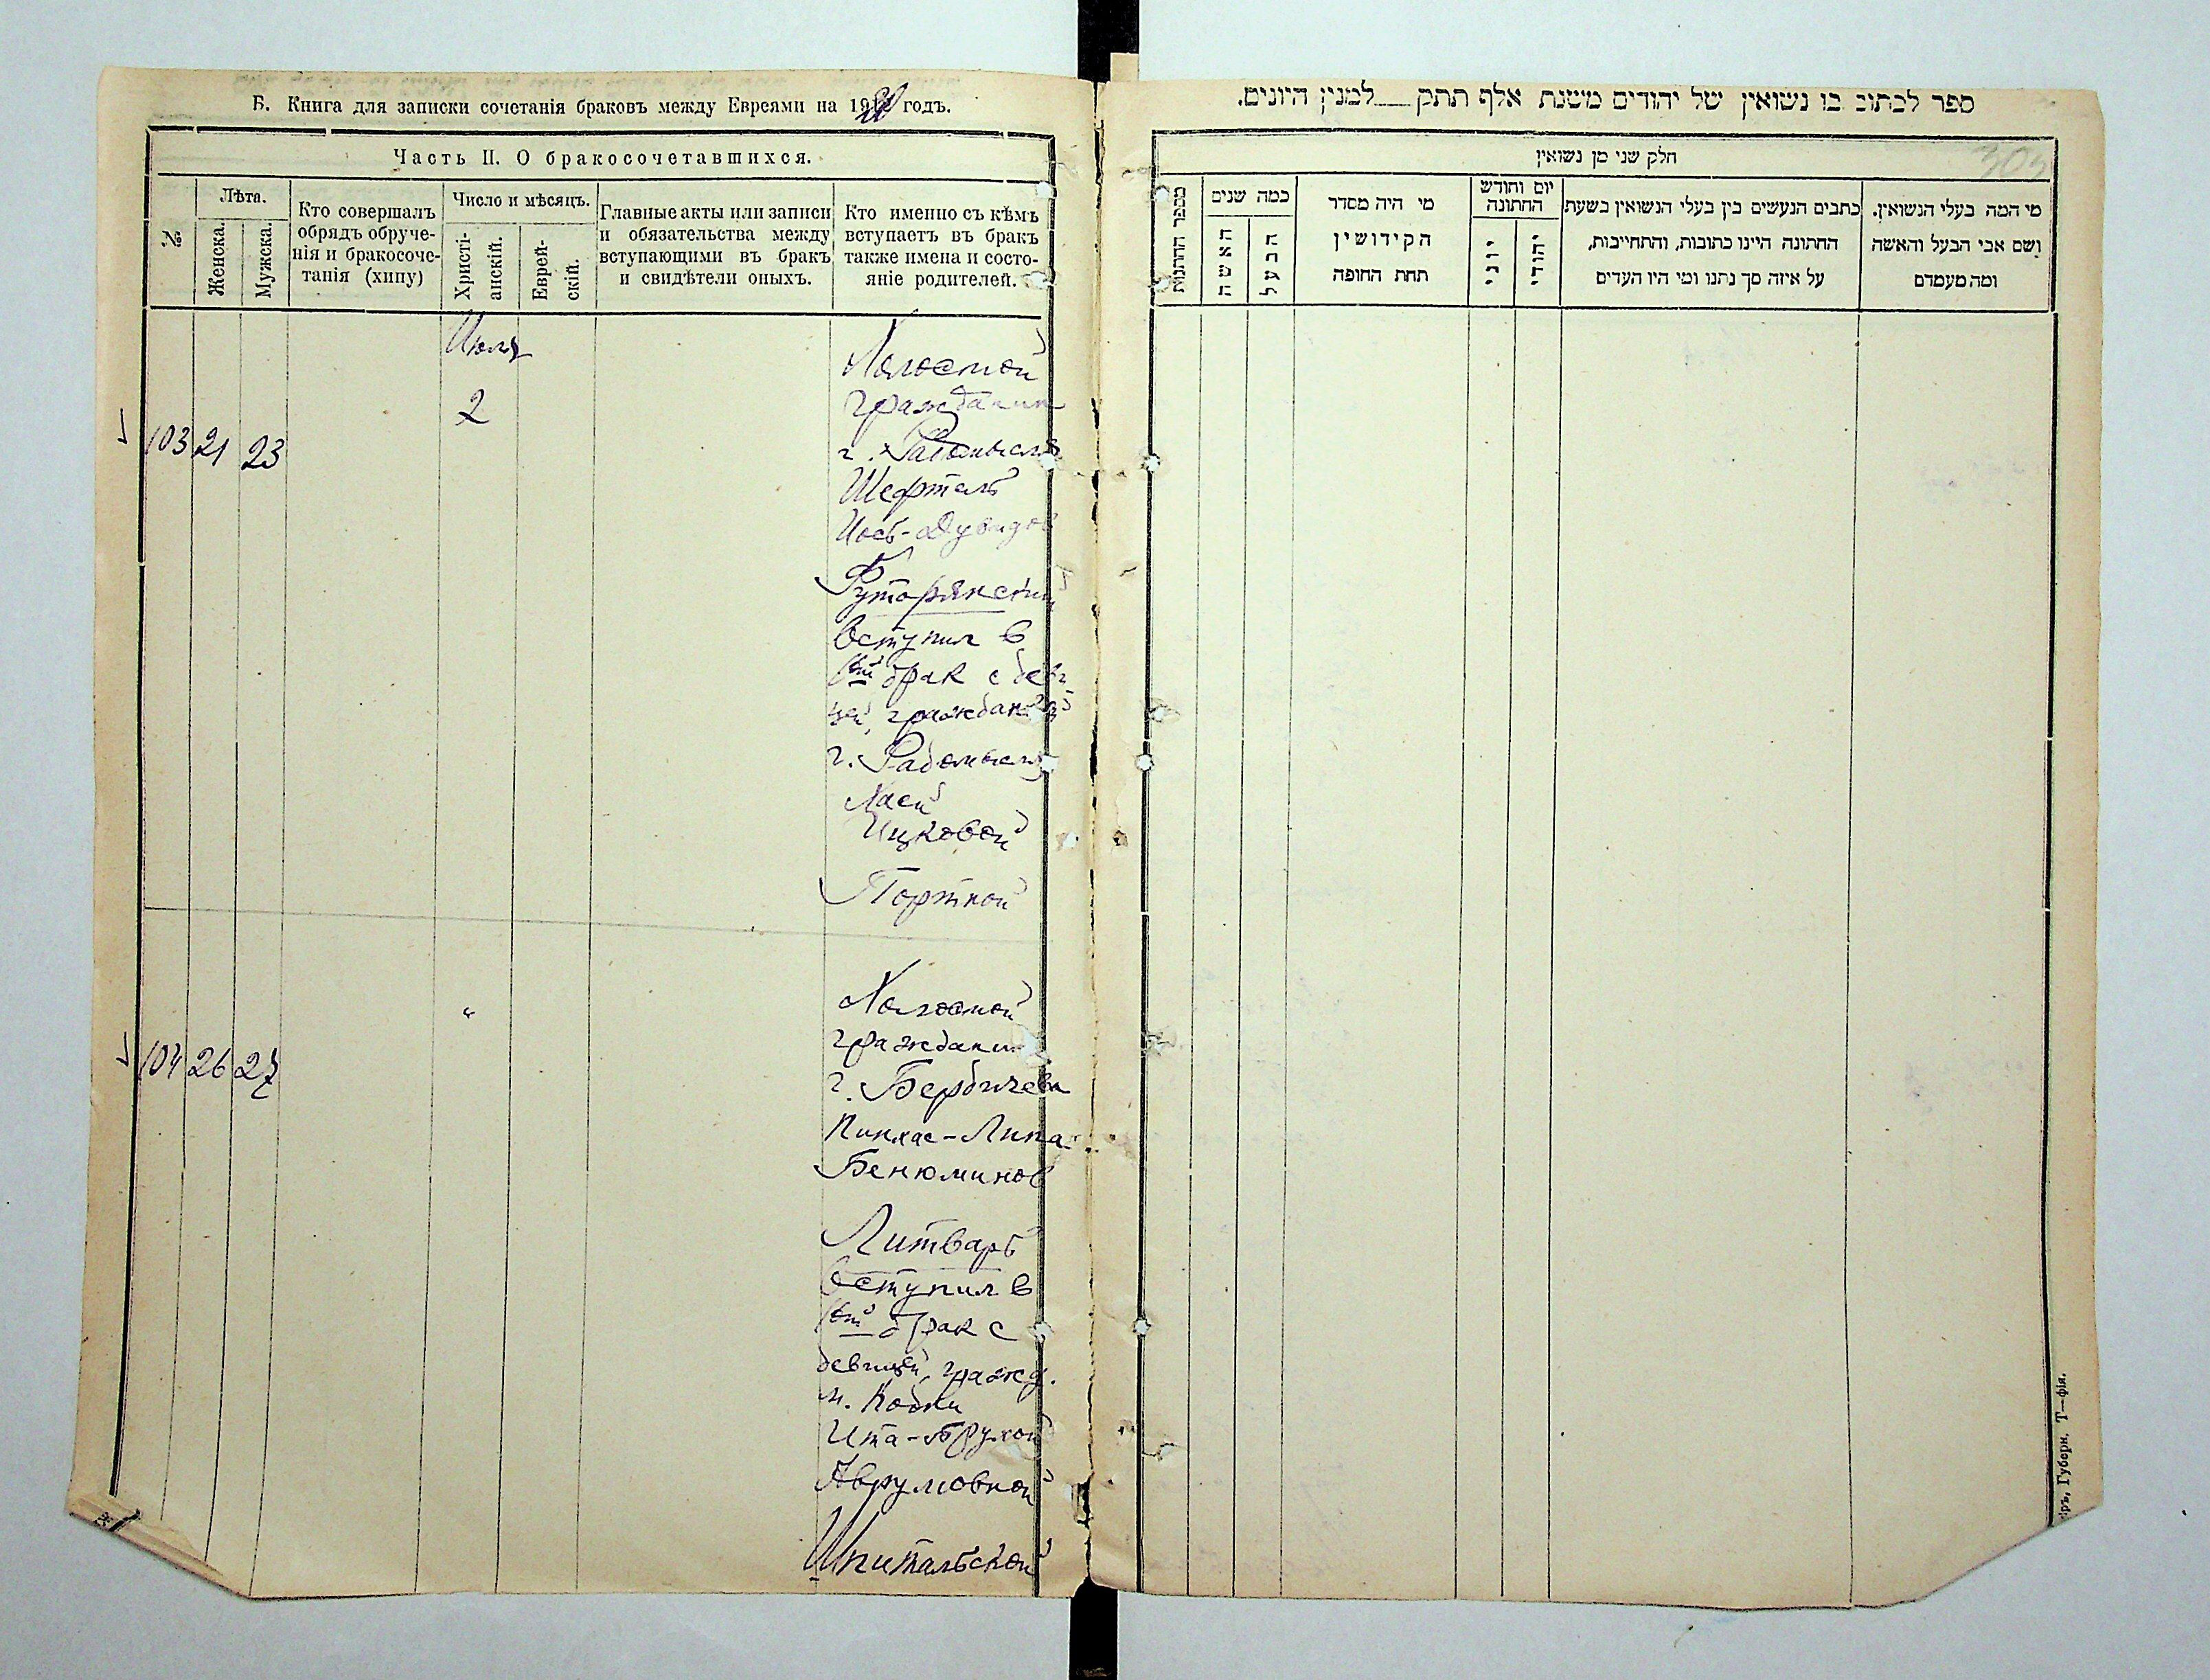 Б. Книга для записки сочетанія браковъ между Евреями на 1920 годъ.
Часть II. О бракосочетавшихся.
№
Лѣта.
Женска.
Мужска.
Кто совершалъ
обрядъ обруче-
нія и бракосоче-
танія (хипу)
Число и мѣсяцъ.
Христі-
анскій.
Еврей-
скій.
Главные акты или записи
и обязательства между
вступающими въ бракъ
и свидѣтели оныхъ.
Кто именно съ кѣмъ
вступаетъ въ бракъ
также имена и состо-
яніе родителей.
Июля
2
103 21 23
Холостой
гражданин
г. Радомысля
Шефтель
Иось-Дувидов
Футорянский
вступил в
1ый брак с деви-
цей, гражданкой
г. Радомысля
Хаей
Ицковой
Портной
104 26 27
"
Холостой
гражданин
г. Бердичева
Пинхас-Липа
Бенюминов
Литваръ
вступил в
1ый брак с
девицей, гражд.
м. Ходки
Ита-Брухой
Аврумовной
Шпитальской
ספר לכתוב בו נשואין של יהודים משנת אלף תתק___למנין היונים.
305
חלק שני מן נשואין
מספר החתונות
כמה שנים
האשה
הבעל
מי היה מסדר
הקידושין
תחת החופה
יום וחודש
החתונה
יוני
יהודי
כתבים הנעשים בין בעלי הנשואין בשעת
החתונה היינו כתובות, והתחייבות,
על איזה סך נתנו ומי היו העדים
מי המה בעלי הנשואין.
ושם אבי הבעל והאשה
ומה מעמדם
Губерн. Т—фія.